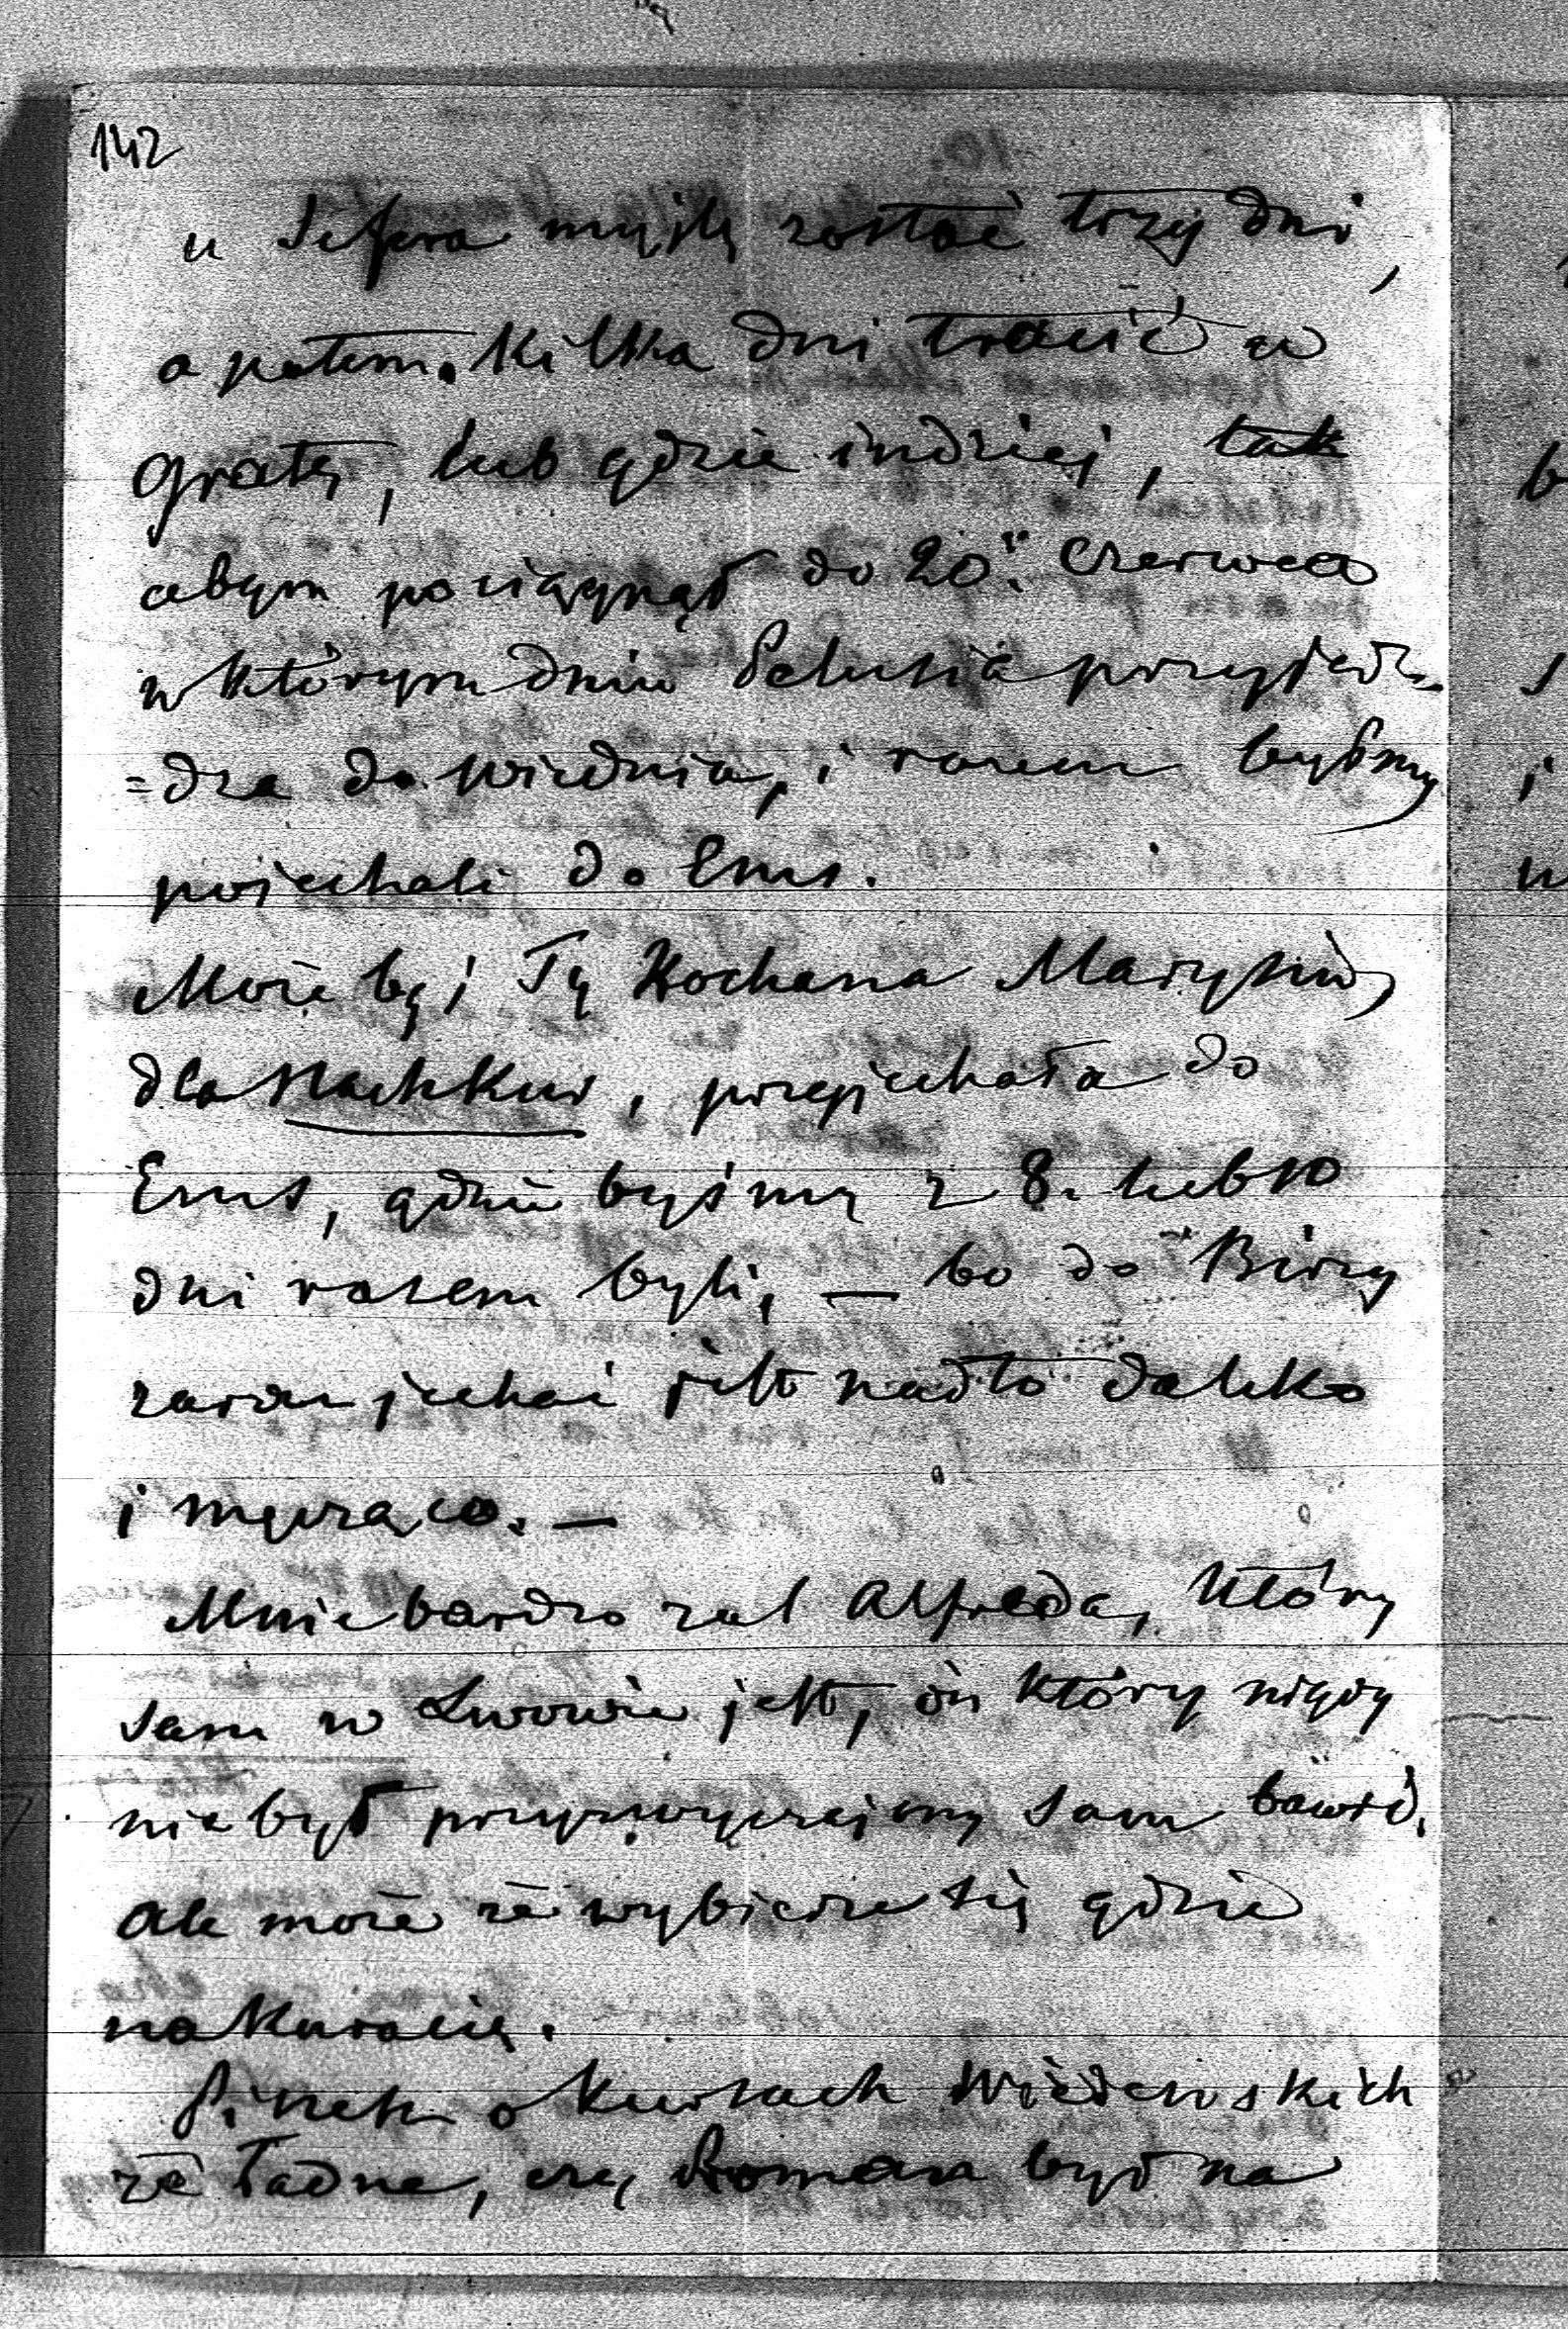 142
u Sefera myślę zostać trzy dni,
a potem. kilka dni tracić w
Gratz, lub gdzie indziej, tak
abym pociągnął do 20. Czerwca
w którym dniu Pelusia przyjedz=
=dza do Wiednia, i razem byśmy
pojechali do Ems.
Może byś Ty Kochana Marysiu,
dla Nachkur, przyjechała do
Ems, gdzie byśmy z 8. lub 10
dni razem byli, — bo do Birzy
zaraz jechać jest nadto daleko
i męcząco. —
Mnie bardzo żal Alfreda, który
sam w Lwowie jest, on który nigdy
nie był przyzwyczajony sam bawić.
Ale może że wybierze się gdzie
na kuracię.
Piszesz o kursach Wiedeńskich
że ładne, czy Roman był na